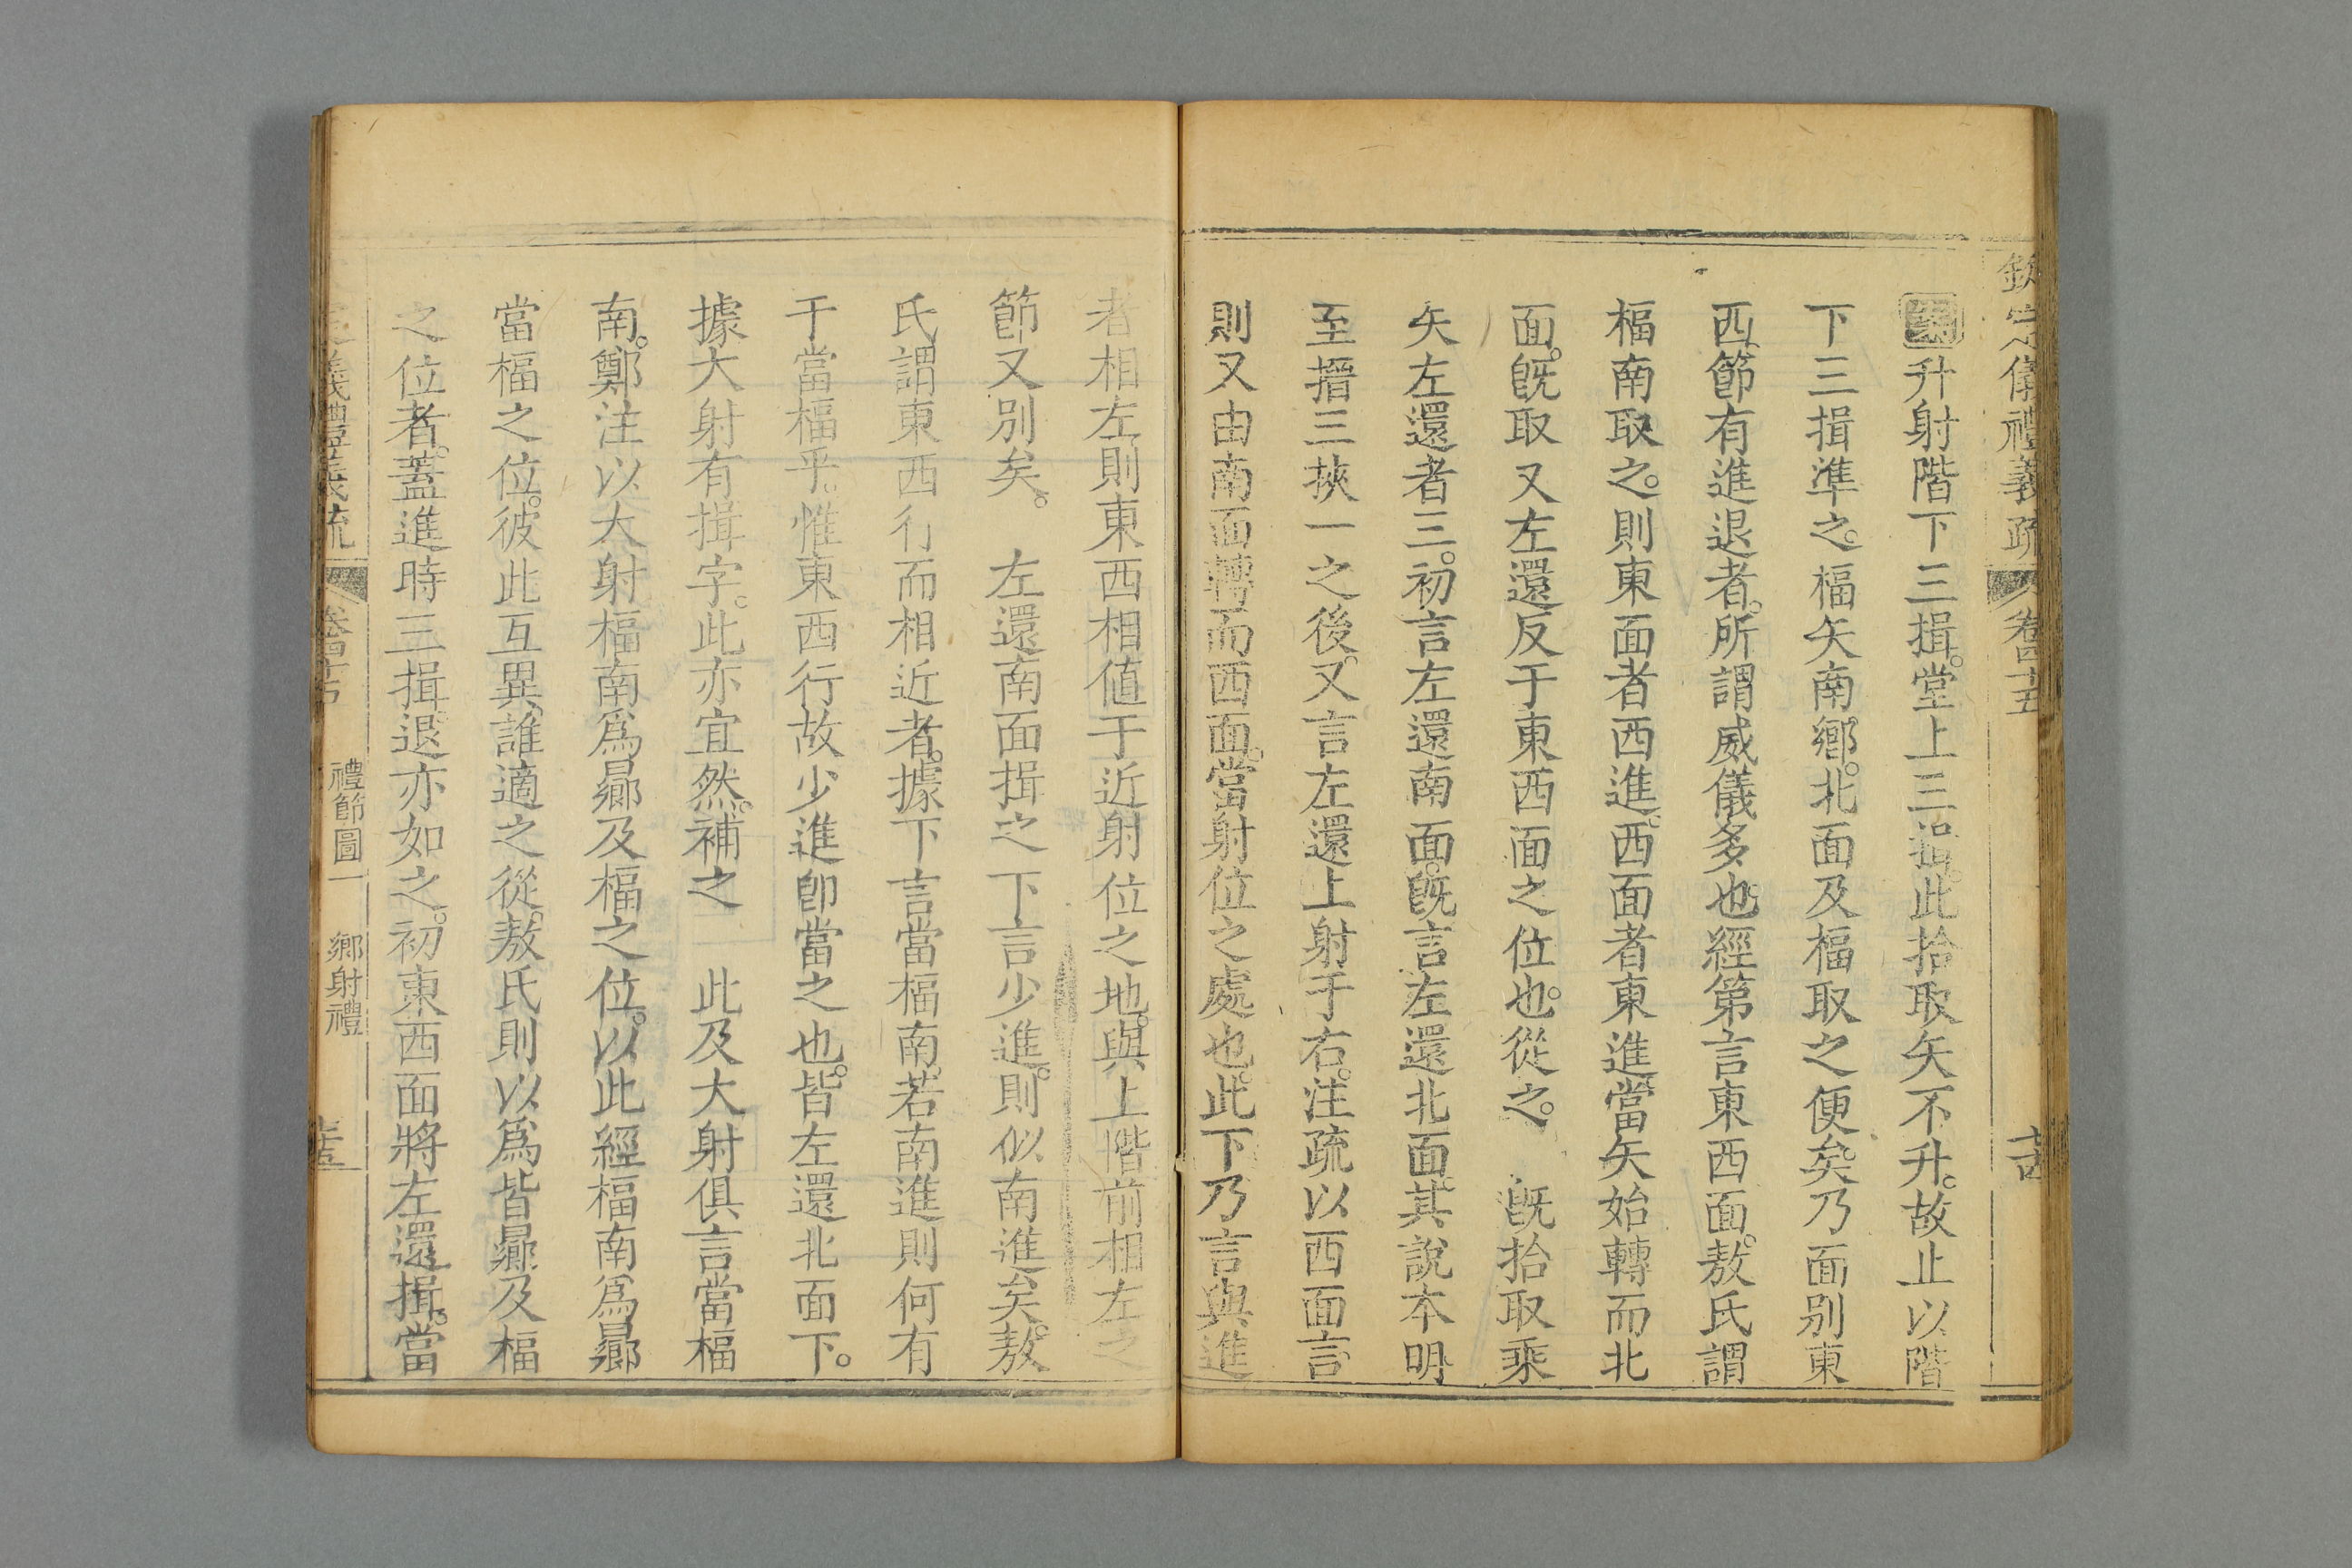 欽定儀禮義疏 卷四十五
升射階下三揖。堂上三揖。此拾取矢不升。故止以階
下三揖準之。楅矢南鄉。北面及楅取之便矣。乃面别東
西、節有進退者。所謂威儀多也。經第言東西面。敖氏謂
楅南取之。則東面者西進。西面者東進。當矢始轉而北
面。旣取又左還反于東西面之位也。從之。　旣拾取乘
矢左還者三。初言左還南面。旣言左還北面。其說本明
至搢三挾一之後。又言左還上射于右。注疏以西面言
則又由南面轉而西面。當射位之處也。此下乃言與進
者相左。則東西相值于近射位之地。與上階前相左之
節又别矣。　左還南面揖之下言少進。則似南進矣。敖
氏謂東西行而相近者。據下言當楅南。若南進則何有
于當楅乎。惟東西行故少進卽當之也。皆左還北面下。
據大射有揖字。此亦宜然。補之　此及大射俱言當楅
南。鄭注以大射楅南爲曏及楅之位。以此經楅南爲曏
當楅之位。彼此互異。誰適之從。敖氏則以爲皆曏及楅
之位者。蓋進時三揖退亦如之。初東西面將左還揖。當
義禮義疏 禮節圖一 鄉射禮